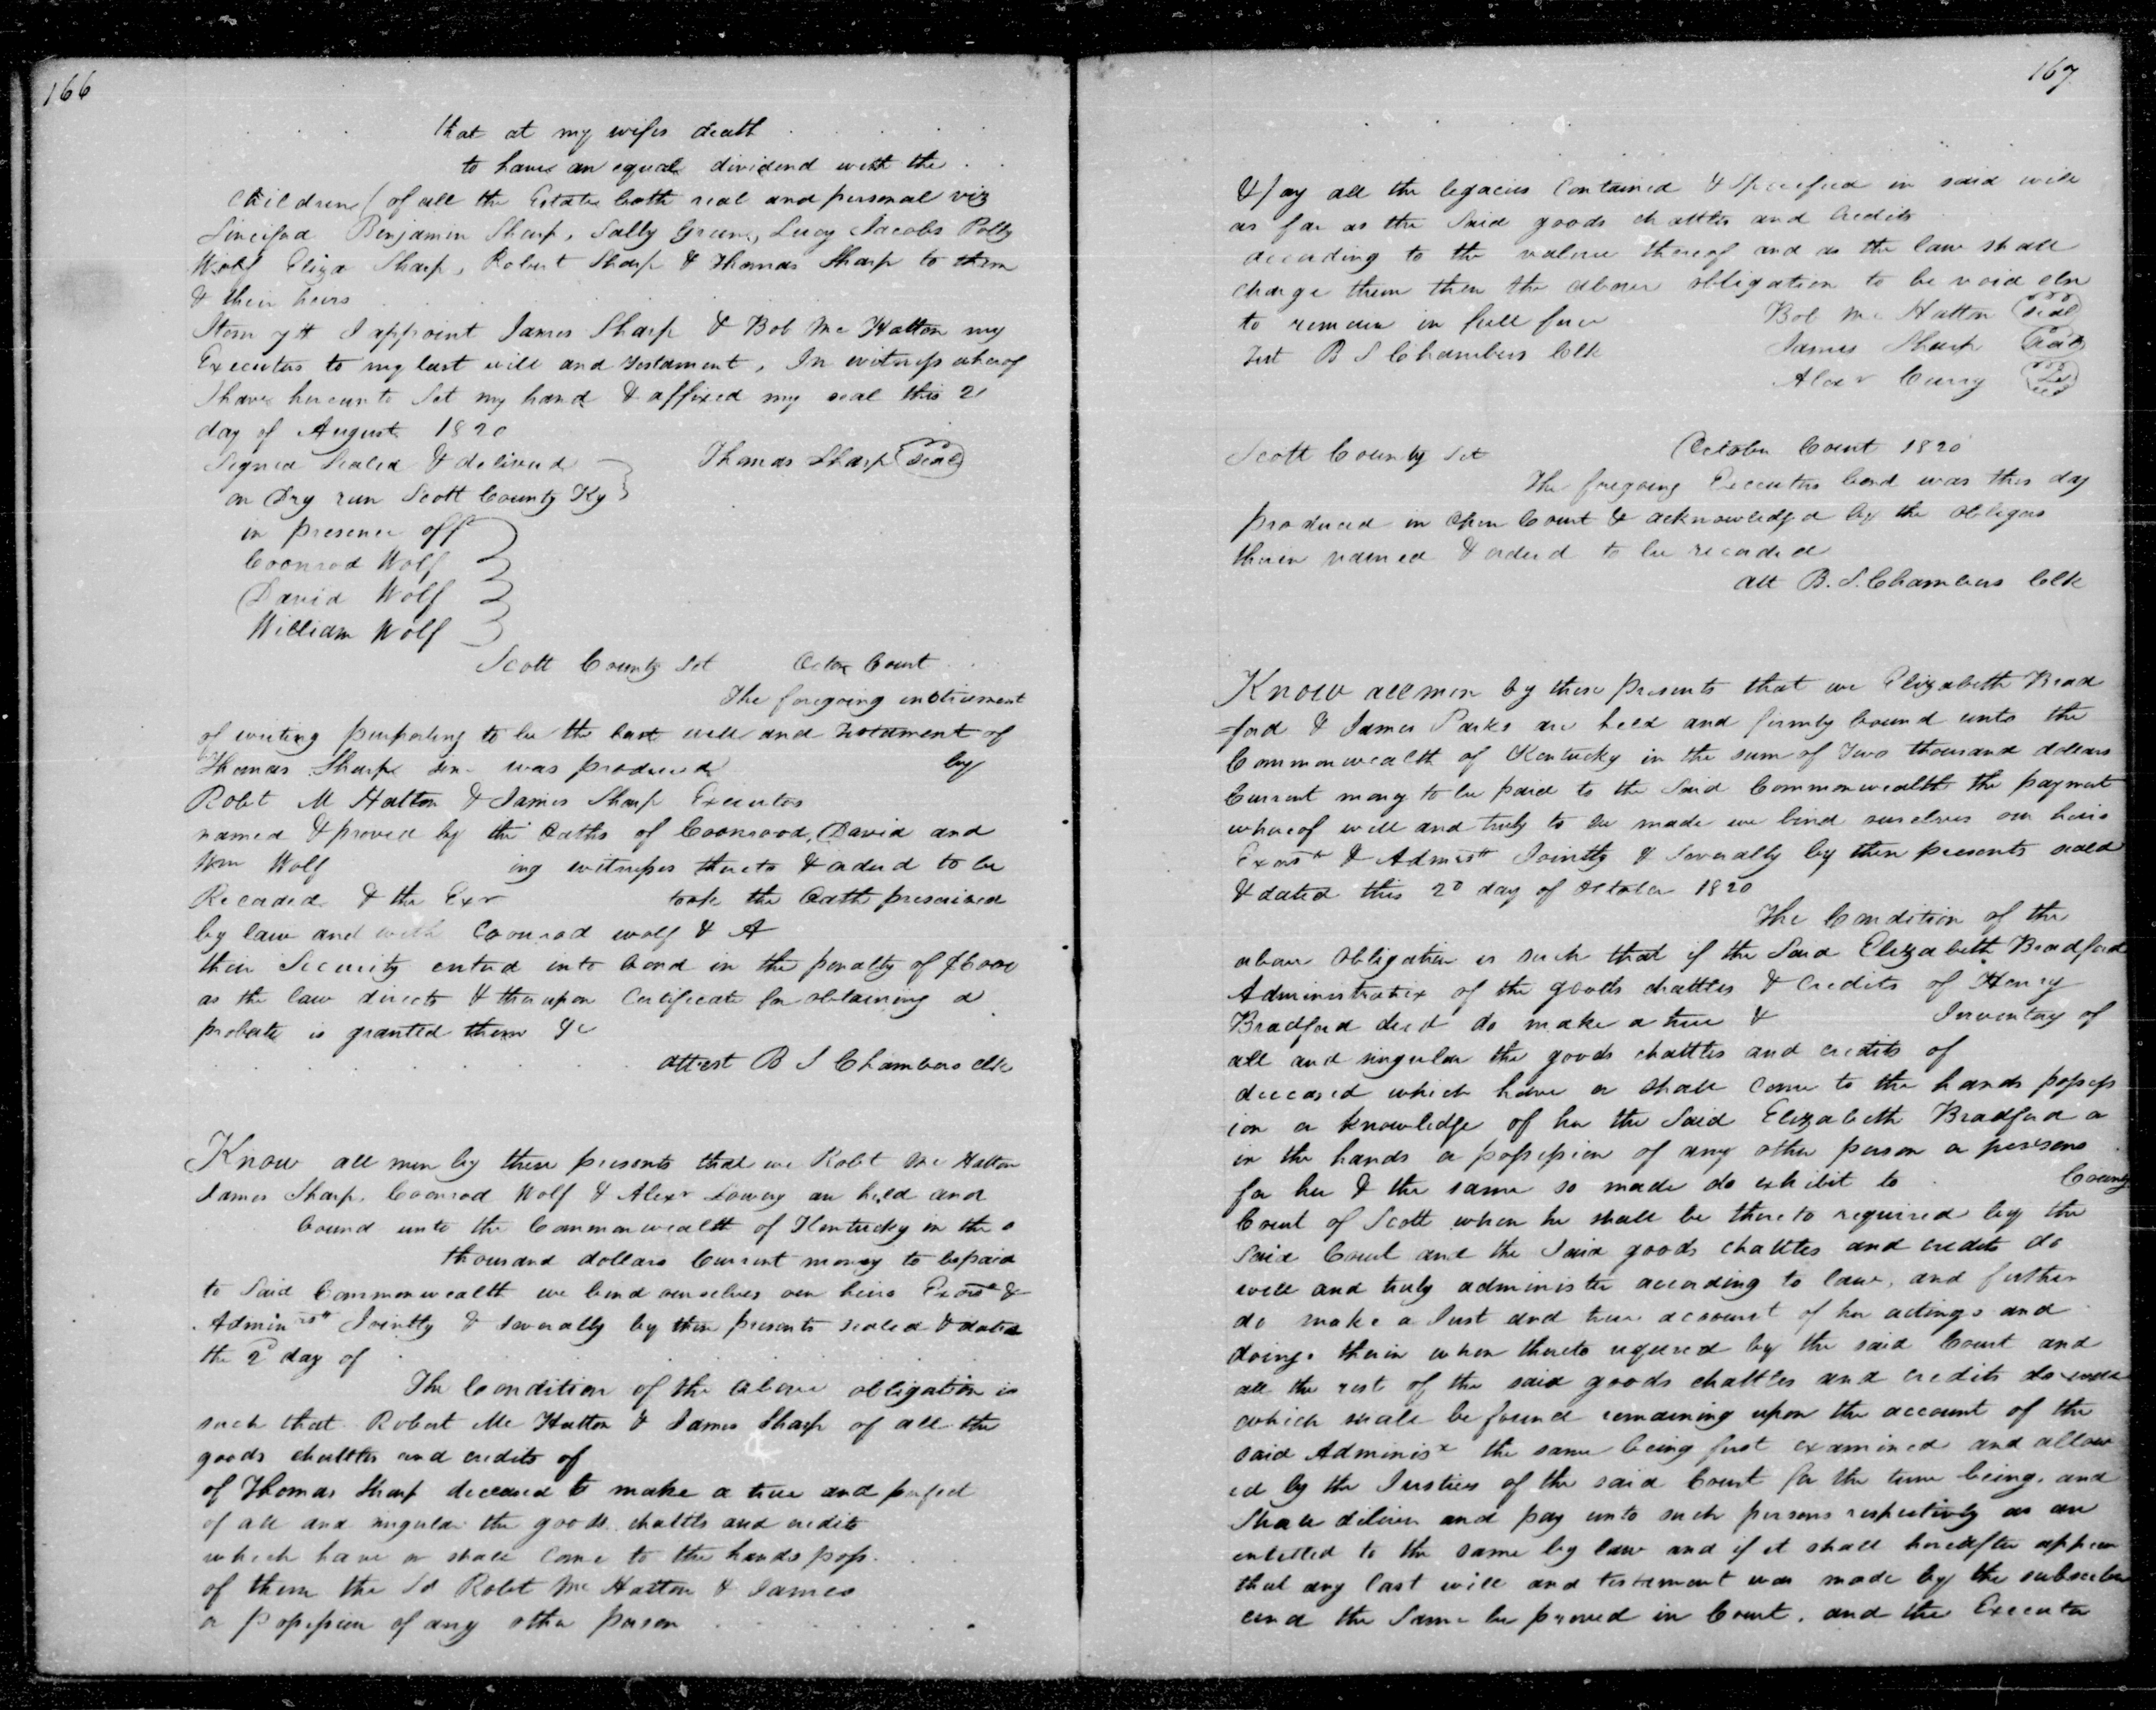 166
that at my wifes death
to have an equal dividend with the
children / of all the Estate both real and personal viz
Benjamin Sharp, Sally Green, Lucy Jacobs Polly
Wolf Eliza Sharp, Robert Sharp & Thomas Sharp to them
& their heirs
Item 7th I appoint James Sharp & Bob Mc Hatton my
Executors to my last will and testament, In witness whereof
I have hereunto Set my hand & affixed my seal this 21
day of August 1820
Signed Sealed & delivered Thomas Sharp seal
on Dry run Scott County Ky
in presence off
Coonrod Wolf
David Wolf
William Wolf
Scott County Sct Octor Court
The foregoing instrument
of writing purporting to be the last will and Testament of
Thomas Sharp sen was produced by
Robt M Hatton & James Sharp Executors
named & proved by the Oaths of Coonrood, David and
Wm Wolf ing witnesses thereto & orderd to be
Recorded & the Exr took the Oath prescribed
by law and with Coonrod wolf & A
their Security entered into bond in the penalty of $6000
as the law directs & thereupon Certificate for obtaining a
probate is granted them &c
attest B S Chambers clk
Know all men by these presents that we Robt Mc Hatton
James Sharp, Coonrod Wolf & Alexr Lowry are held and
bound unto the Commonwealth of Kentucky in the
thousand dollars Current money to be paid
to Said Commonwealth we bind ourselves our heirs Exors &
Adminrs Jointly & severally by these presents sealed & dated
the 2d day of
The Condition of the above obligation is
such that Robert Mc Hatton & James Sharp of all the
goods chattles and credits of
of Thomas Sharp deceased to make a true and perfect
of all and singular the goods chattls and credits
which have or shall come to the hands poss
of them the Sd Robt Mc Hatton & James
or possession of any other person
167
& pay all the legacies Contained & Specified in said will
as far as the Said goods chattles and Credits
according to the value thereof and as the law shall
charge them then the above obligation to be void else
to remain in full force Bob Mc Hatton seal
Test B S Chambers Clk James Sharp seal
Alexr seal
Scott County Sct October Court 1820
The foregoing Executors bond was this day
produced in Open Court & acknowledged by the obligors
therein named & orderd to be recorded
att B. S. Chambers Clk
Know all men by these presents that we Elizabeth Brad
=ford & James Parks are held and firmly bound unto the
Commonwealth of Kentucky in the sum of Two thousand dollars
Current money to be paid to the Said Commonwealth the payment
whereof well and truly to be made we bind ourselves our heirs
Exors & Admrs Jointly & Severally by these presents seald
& dated this 2d day of October 1820
The Condition of the
above Obligation is such that if the Said Elizabeth Bradford
Administratrix of the goods chattles & Credits of Henry
Bradford decd do make a true & Inventory of
all and singular the goods chattles and credits of
deceased which have or shall come to the hands possess
ion or knowledge of her the Said Elizabeth Bradford or
in the hands or possession of any other person or persons
for her & the same so made do exhibit to County
Court of Scott when he shall be thereto required by the
Said Court and the Said goods chattles and credits do
well and truly administer according to law, and further
do make a Just and true account of her actings and
doings therein when thereto required by the said Court and
all the rest of the said goods chattles and credits
which shall be found remaining upon the account of the
said Administx the same being first examined and allow
ed by the Justices of the said Court for the time being, and
Shall deliver and pay unto such persons respectively as are
entitled to the same by law and if it shall hereafter appear
that any last will and testament was made by the
and the Same be proved in Court, and the Executor